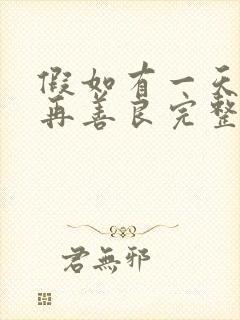 假如有一天
再善良完整
君無邪